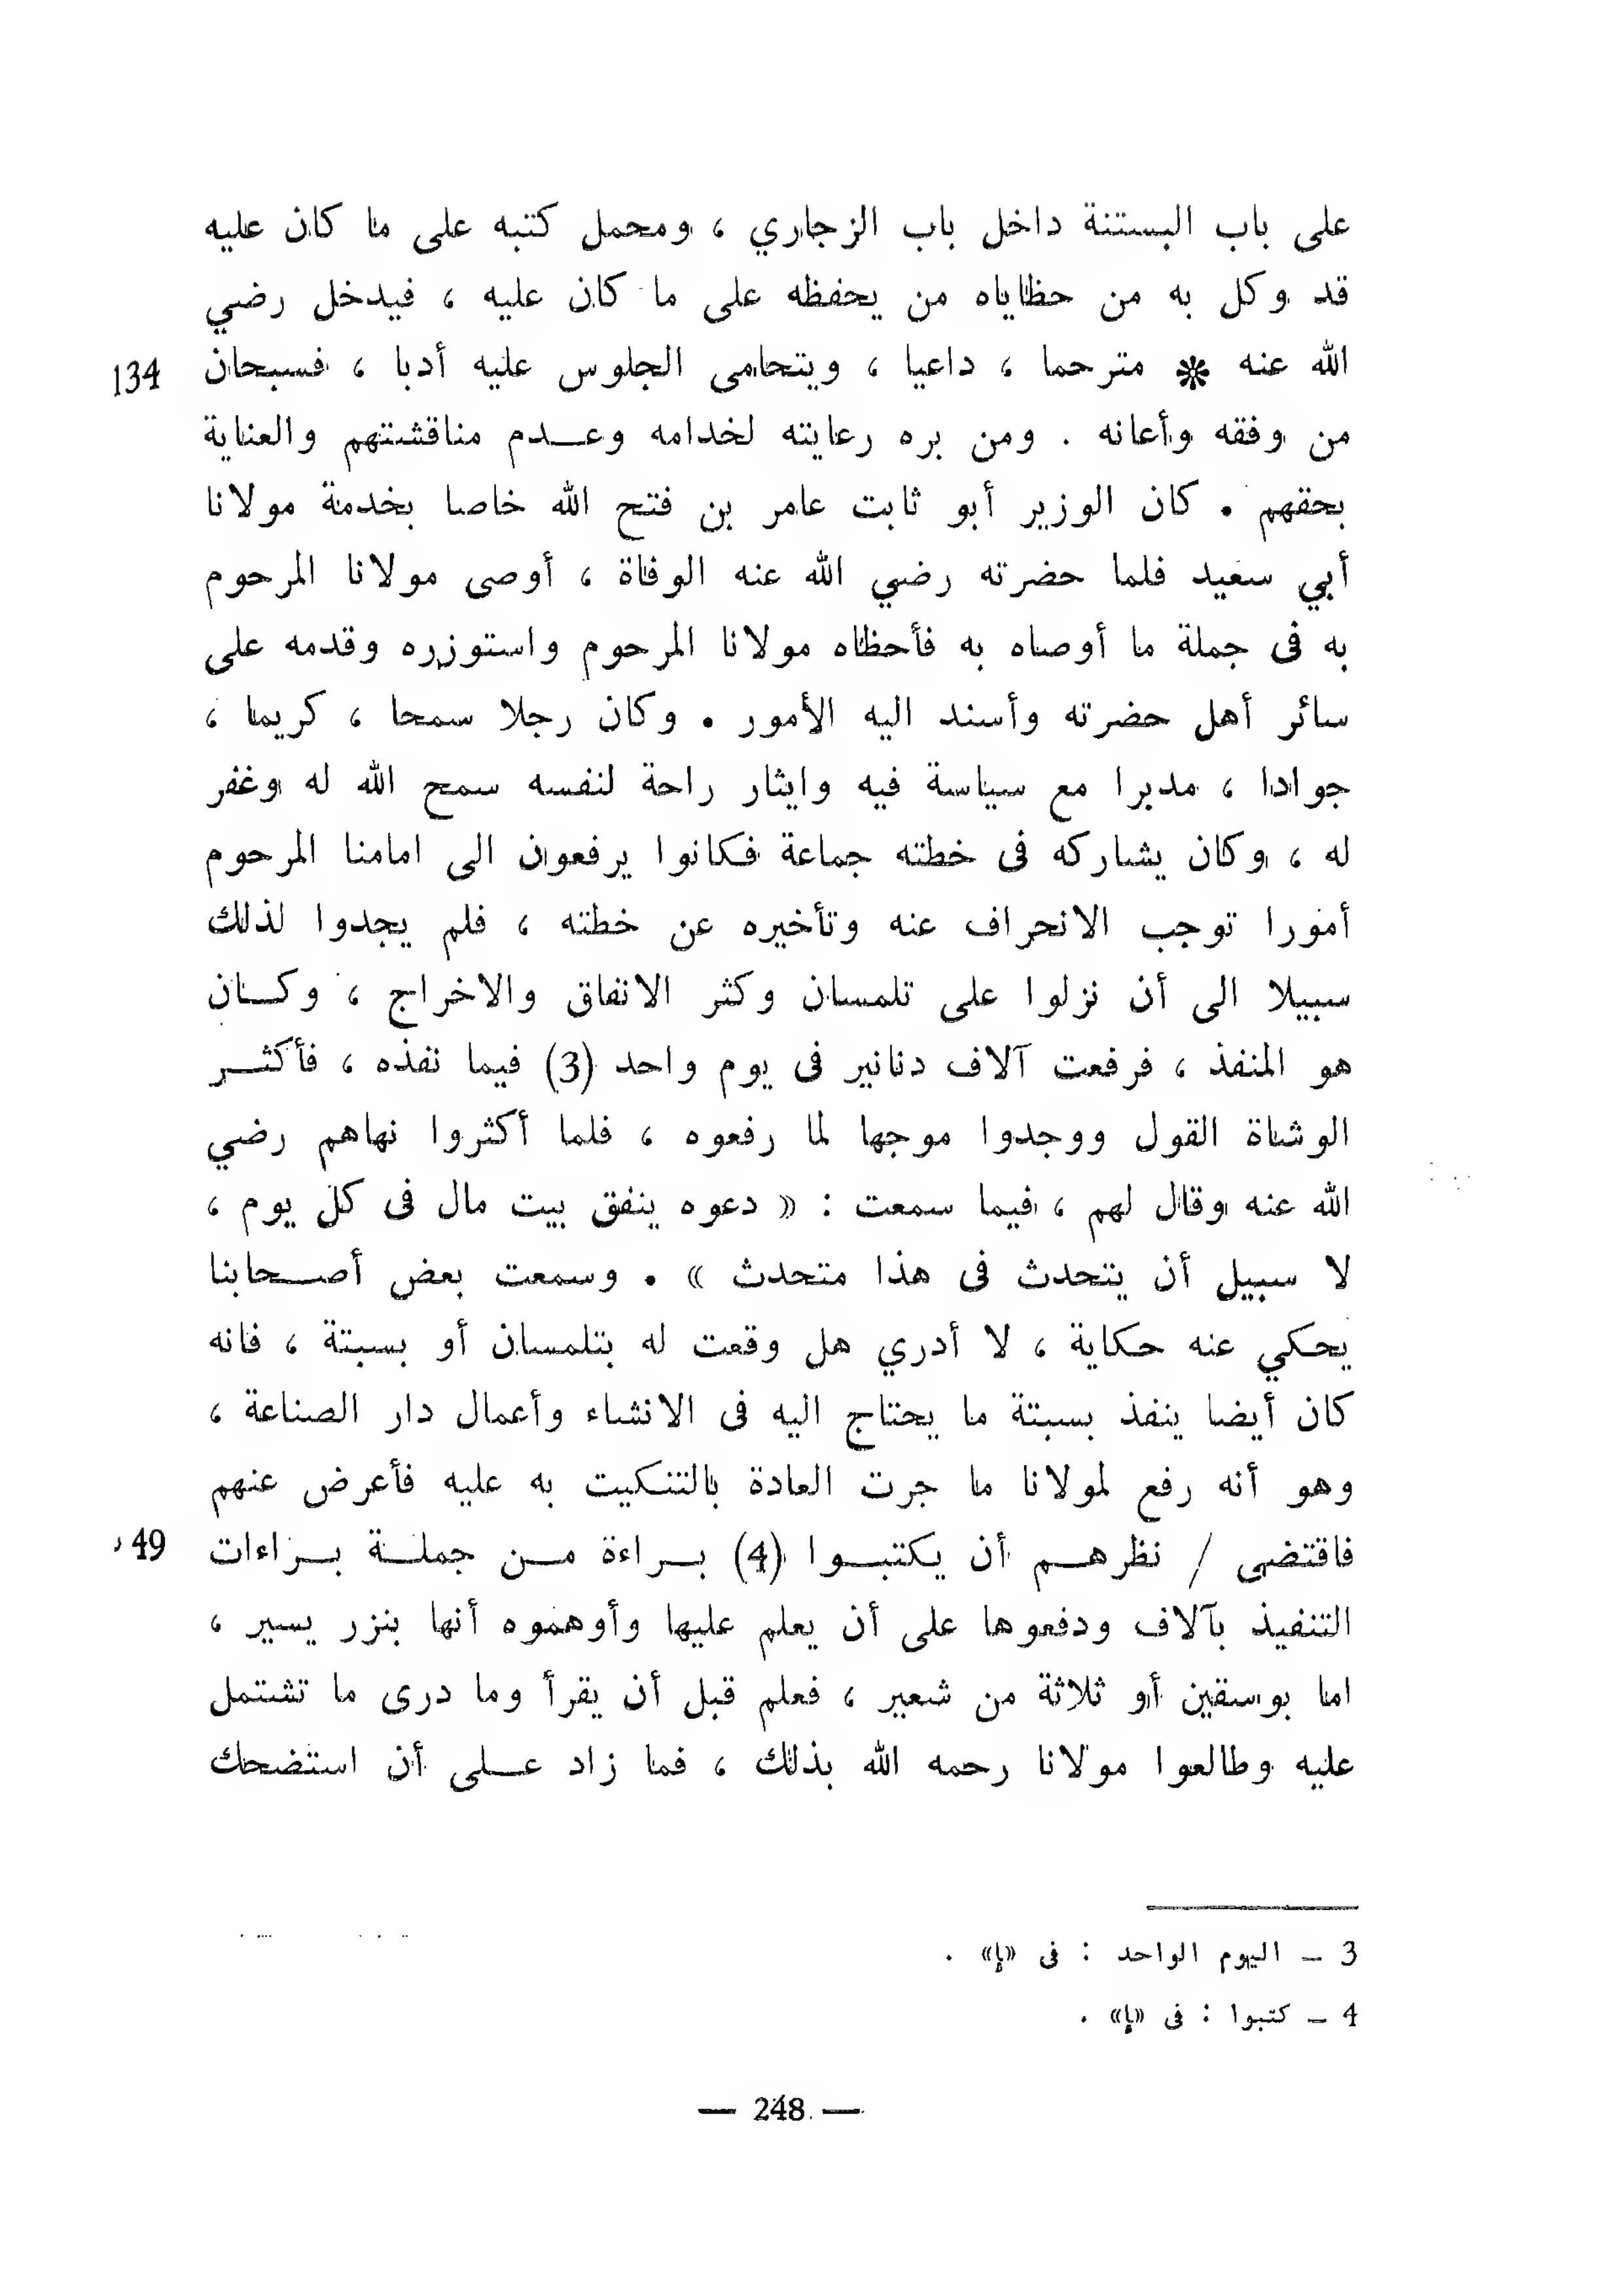 على باب البستنة داخل باب الزجاري ، ومحمل كتبه على ما كان عليه
قد وكل به من حظاياه من يحفظه على ما كان عليه ، فيدخل رضي
الله عنه * مترحما ، داعيا ، ويتحامى الجلوس عليه أدبا ، فسبحان 134
من وفقه وأعانه . ومن بره رعايته لخدامه وعـــدم مناقشتهم والعناية
بحقهم . كان الوزير أبو ثابت عامر بن فتح الله خاصا بخدمة مولانا
أبي سعيد فلما حضرته رضي الله عنه الوفاة ، أوصى مولانا المرحوم
به فى جملة ما أوصاه به فأحظاه مولانا المرحوم واستوزره وقدمه على
سائر أهل حضرته وأسند اليه الأمور . وكان رجلا سمحا ، كريما ،
جوادا ، مدبرا مع سياسة فيه وايثار راحة لنفسه سمح الله له وغفر
له ، وكان يشاركه فى خطته جماعة فكانوا يرفعون الى امامنا المرحوم
أمورا توجب الانحراف عنه وتأخيره عن خطته ، فلم يجدوا لذلك
سبيلا الى أن نزلوا على تلمسان وكثر الانفاق والاخراج ، وكـــان
هو المنفذ ، فرفعت آلاف دنانير فى يوم واحد (3) فيما نفذه ، فأكثـــر
الوشاة القول ووجدوا موجها لما رفعوه ، فلما أكثروا نهاهم رضي
الله عنه وقال لهم ، فيما سمعت : « دعوه ينفق بيت مال فى كل يوم ،
لا سبيل أن يتحدث فى هذا متحدث » . وسمعت بعض أصـــحابنا
يحكي عنه حكاية ، لا أدري هل وقعت له بتلمسان أو بسبتة ، فانه
كان أيضا ينفذ بسبتة ما يحتاج اليه فى الانشاء وأعمال دار الصناعة ،
وهو أنه رفع لمولانا ما جرت العادة بالتنكيت به عليه فأعرض عنهم
فاقتضى / نظرهـــم أن يكتبـــوا (4) بـــراءة مـــن جملـــة بـــراءات 49 و
التنفيذ بآلاف ودفعوها على أن يعلم عليها وأوهموه أنها بنزر يسير ،
اما بوسقين أو ثلاثة من شعير ، فعلم قبل أن يقرأ وما درى ما تشتمل
عليه وطالعوا مولانا رحمه الله بذلك ، فما زاد عـــلى أن استضحك
3 ـ اليوم الواحد : فى «إ» .
4 ـ كتبوا : فى «إ» .
— 248 —